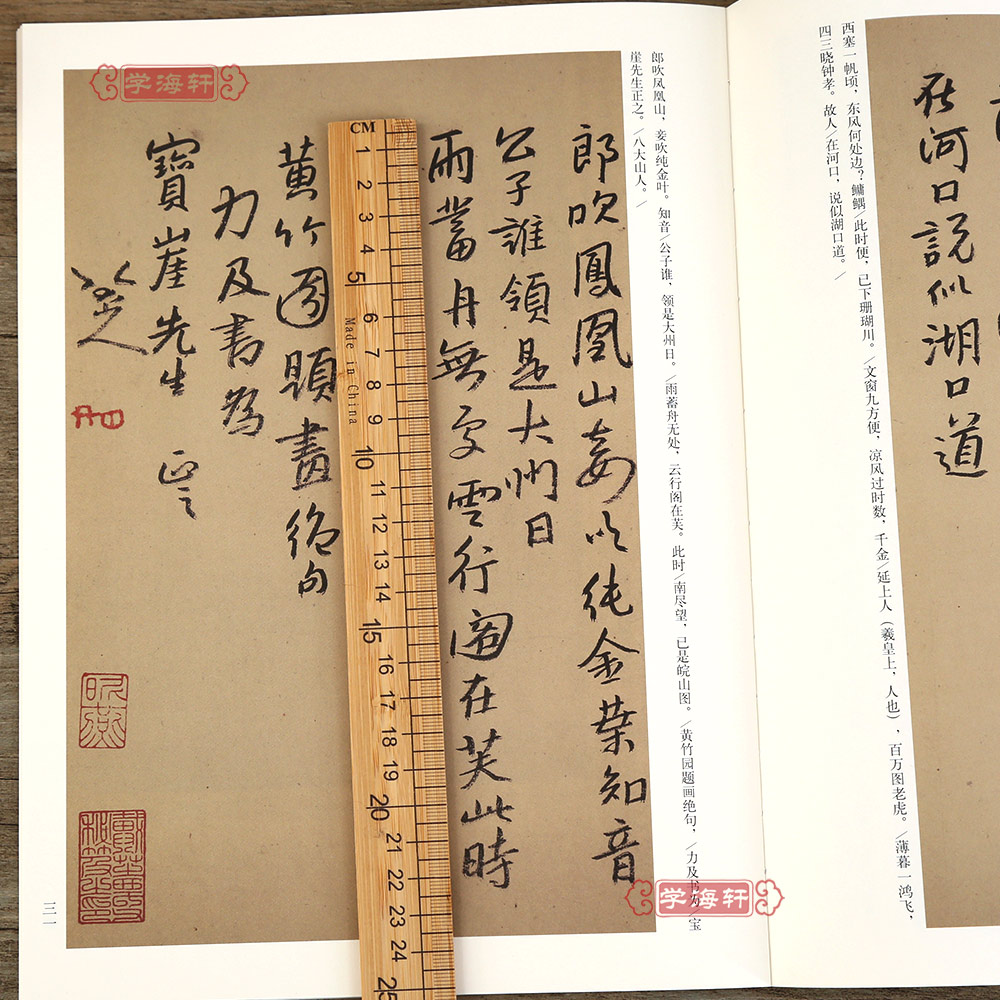 在河口説似湖口道
西塞一帆顷，东风何处边？鳙鳎/此时便，已下珊瑚川。/文窗九方便，凉风过时数，千金/延上人（羲皇上，人也），百万图老虎。/薄暮一鸿飞，
四三晓钟孝。故人/在河口，说似湖口道。/
郎吹凤凰山，妾吹纯金叶。知音/公子谁，领是大州日。/雨蓄舟无处，云行阁在芙。此时/南尽望，已是皖山图。/黄竹园题画绝句，力及书为/宝
崖先生正之。/八大山人。/
郎吹鳳凰山妾吹純金葉知音
公子誰領是大州日
雨蓄舟無處雲行閣在芙此時
黄竹園題畫絶句
力及書為
寶崖先生正之
八大山人
学海轩
学海轩
CM
1 2 3 4 5 6 7 8 9 10 11 12 13 14 15 16 17 18 19 20 21 22 23 24 25
Made in China
三一